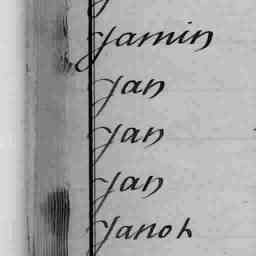 Jamin
Jan
Jan
Jan
Janoh